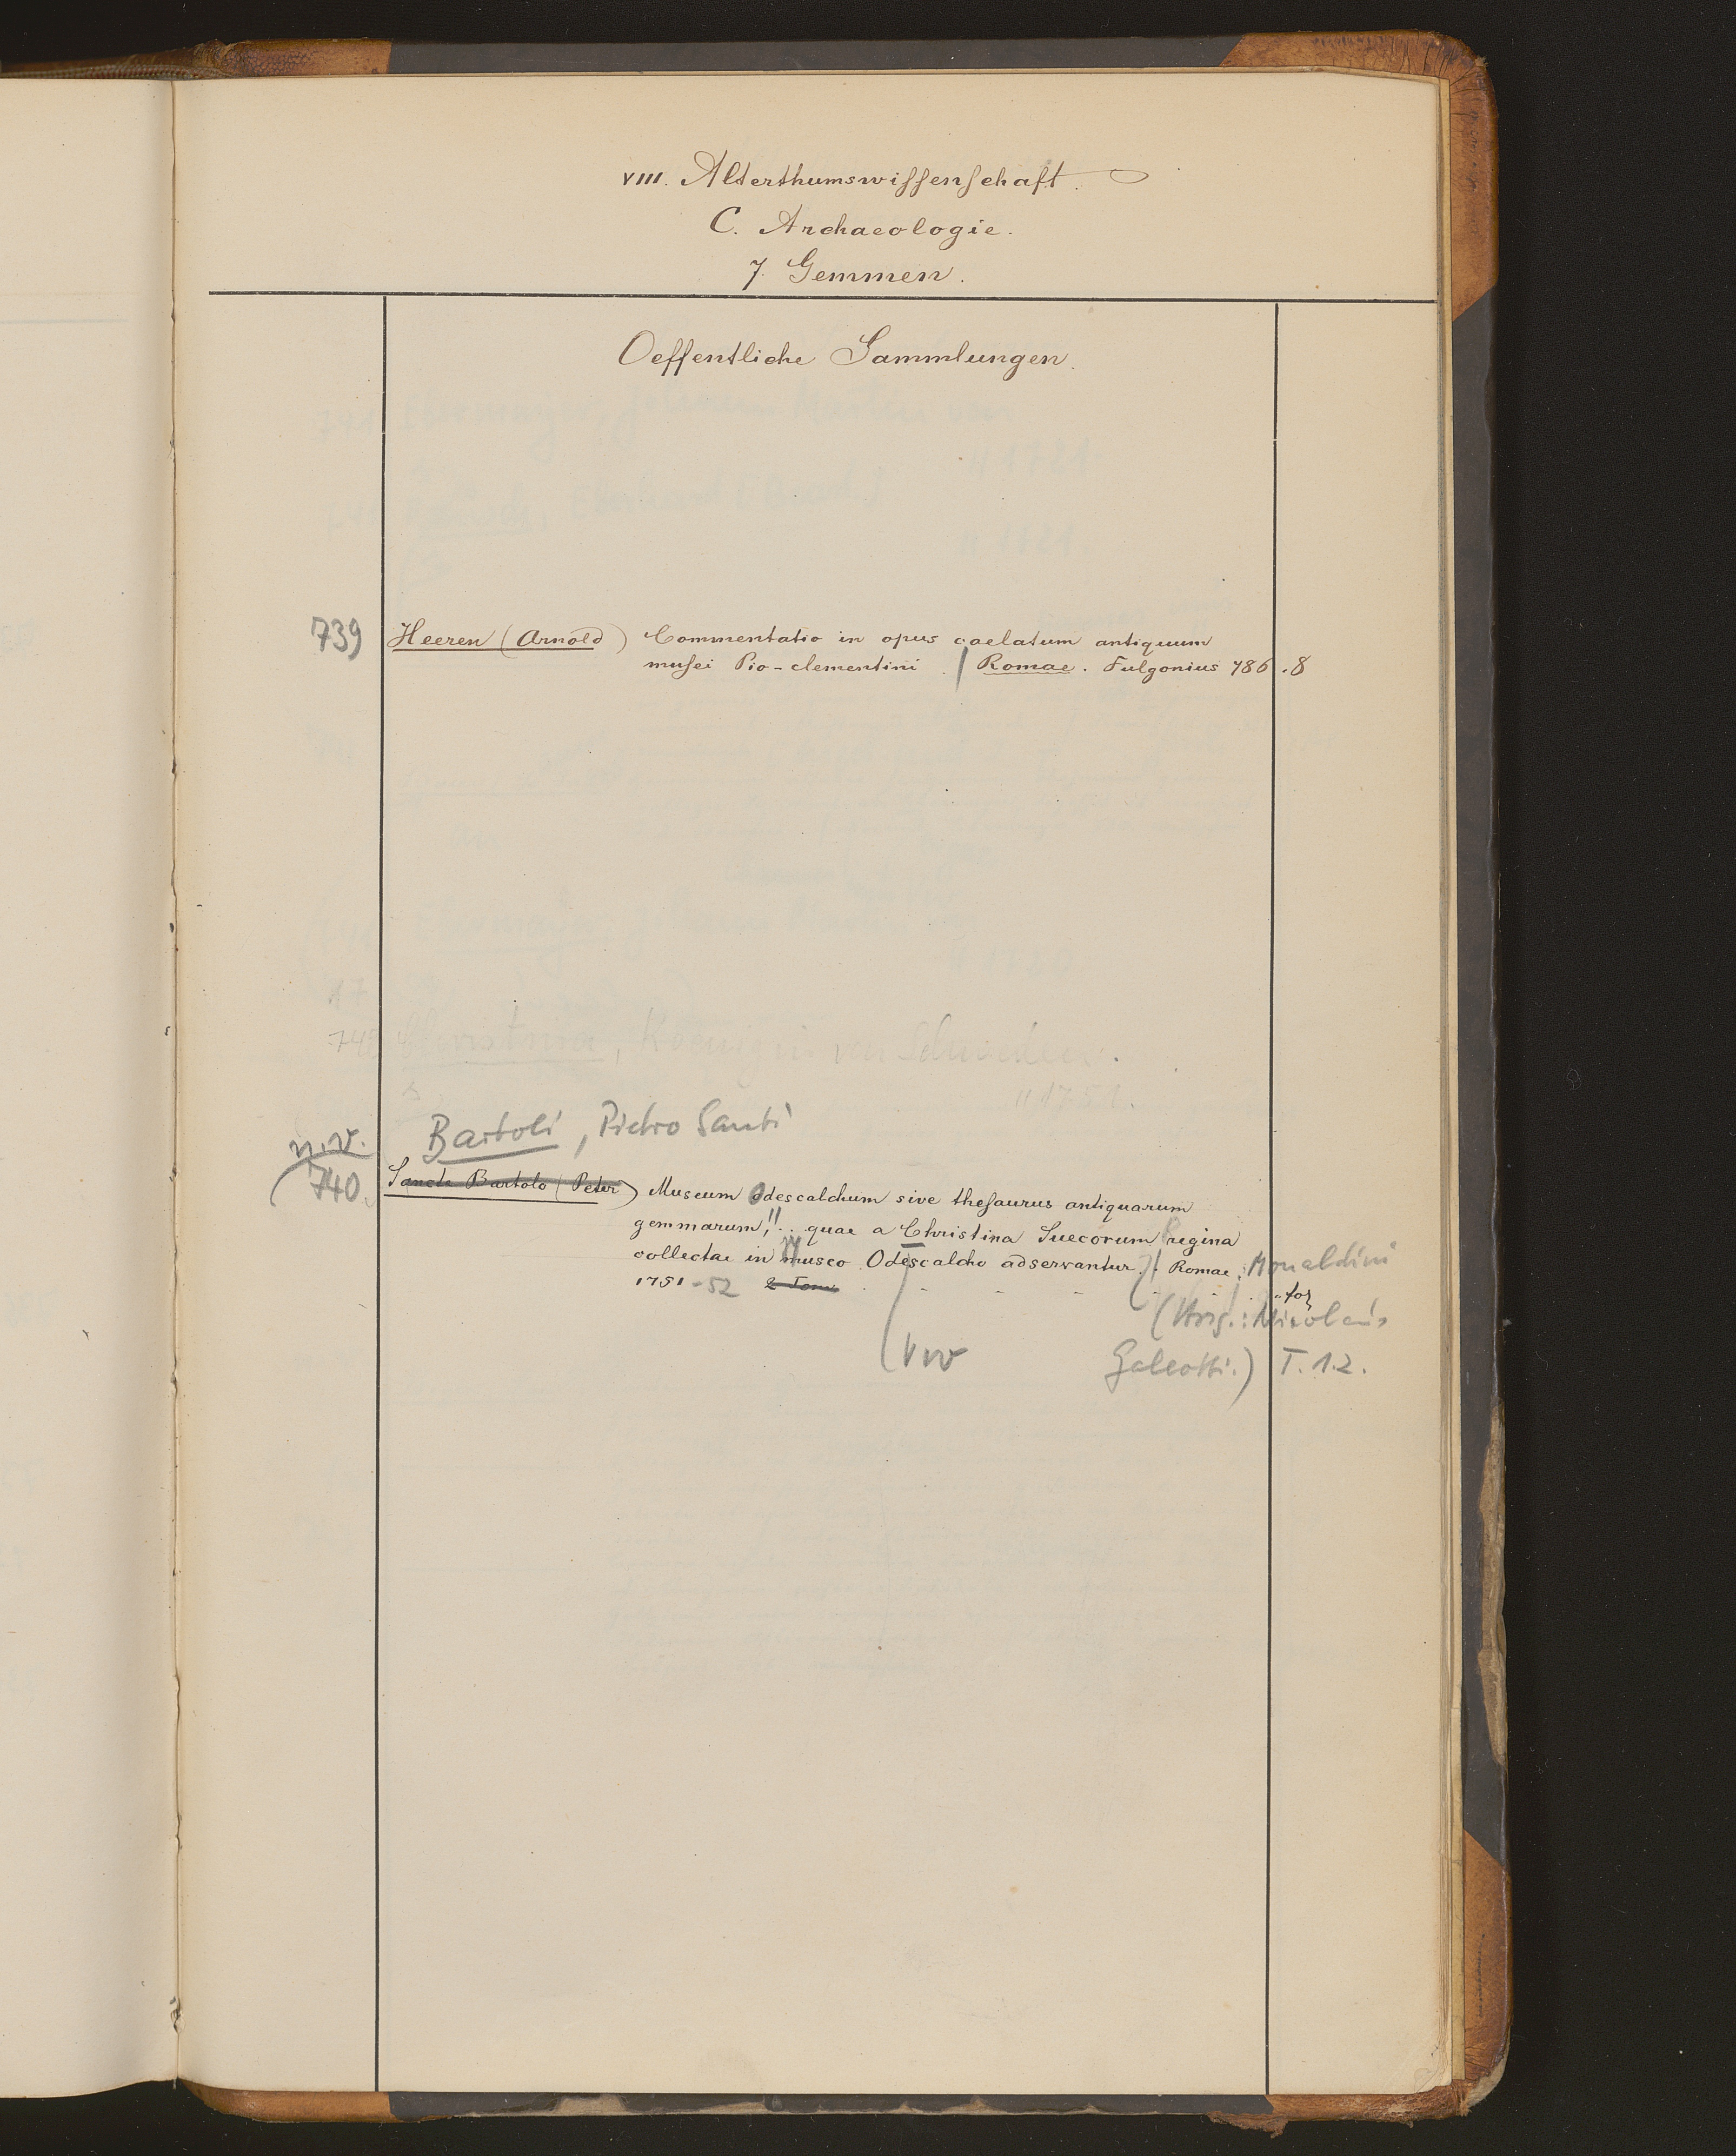 VIII. Alterthumswissenschaft.
C. Archaeologie.
7. Gemmen.
Oeffentliche Sammlungen.
739 Heeren (Arnold) Commentatio in opus caelatum antiquum
musei Pio-clementini. / Romae. Fulgonius 786.8
742 Christina, Koenigin von Schweden.
"1751.
n.v. Bartoli, Pietro Santi
740. Sancte Bartolo (Peter) Museum Odescalchum sive thesaurus antiquarum
gemmarum, ... quae a Christina Suecorum Regina
collectae in Museo Odescalcho adservantur. / Romae: Monaldini
1751-52 2 Tom. fol
(Hrsg.: Nicolaus
Galeotti.) T. 1.2.